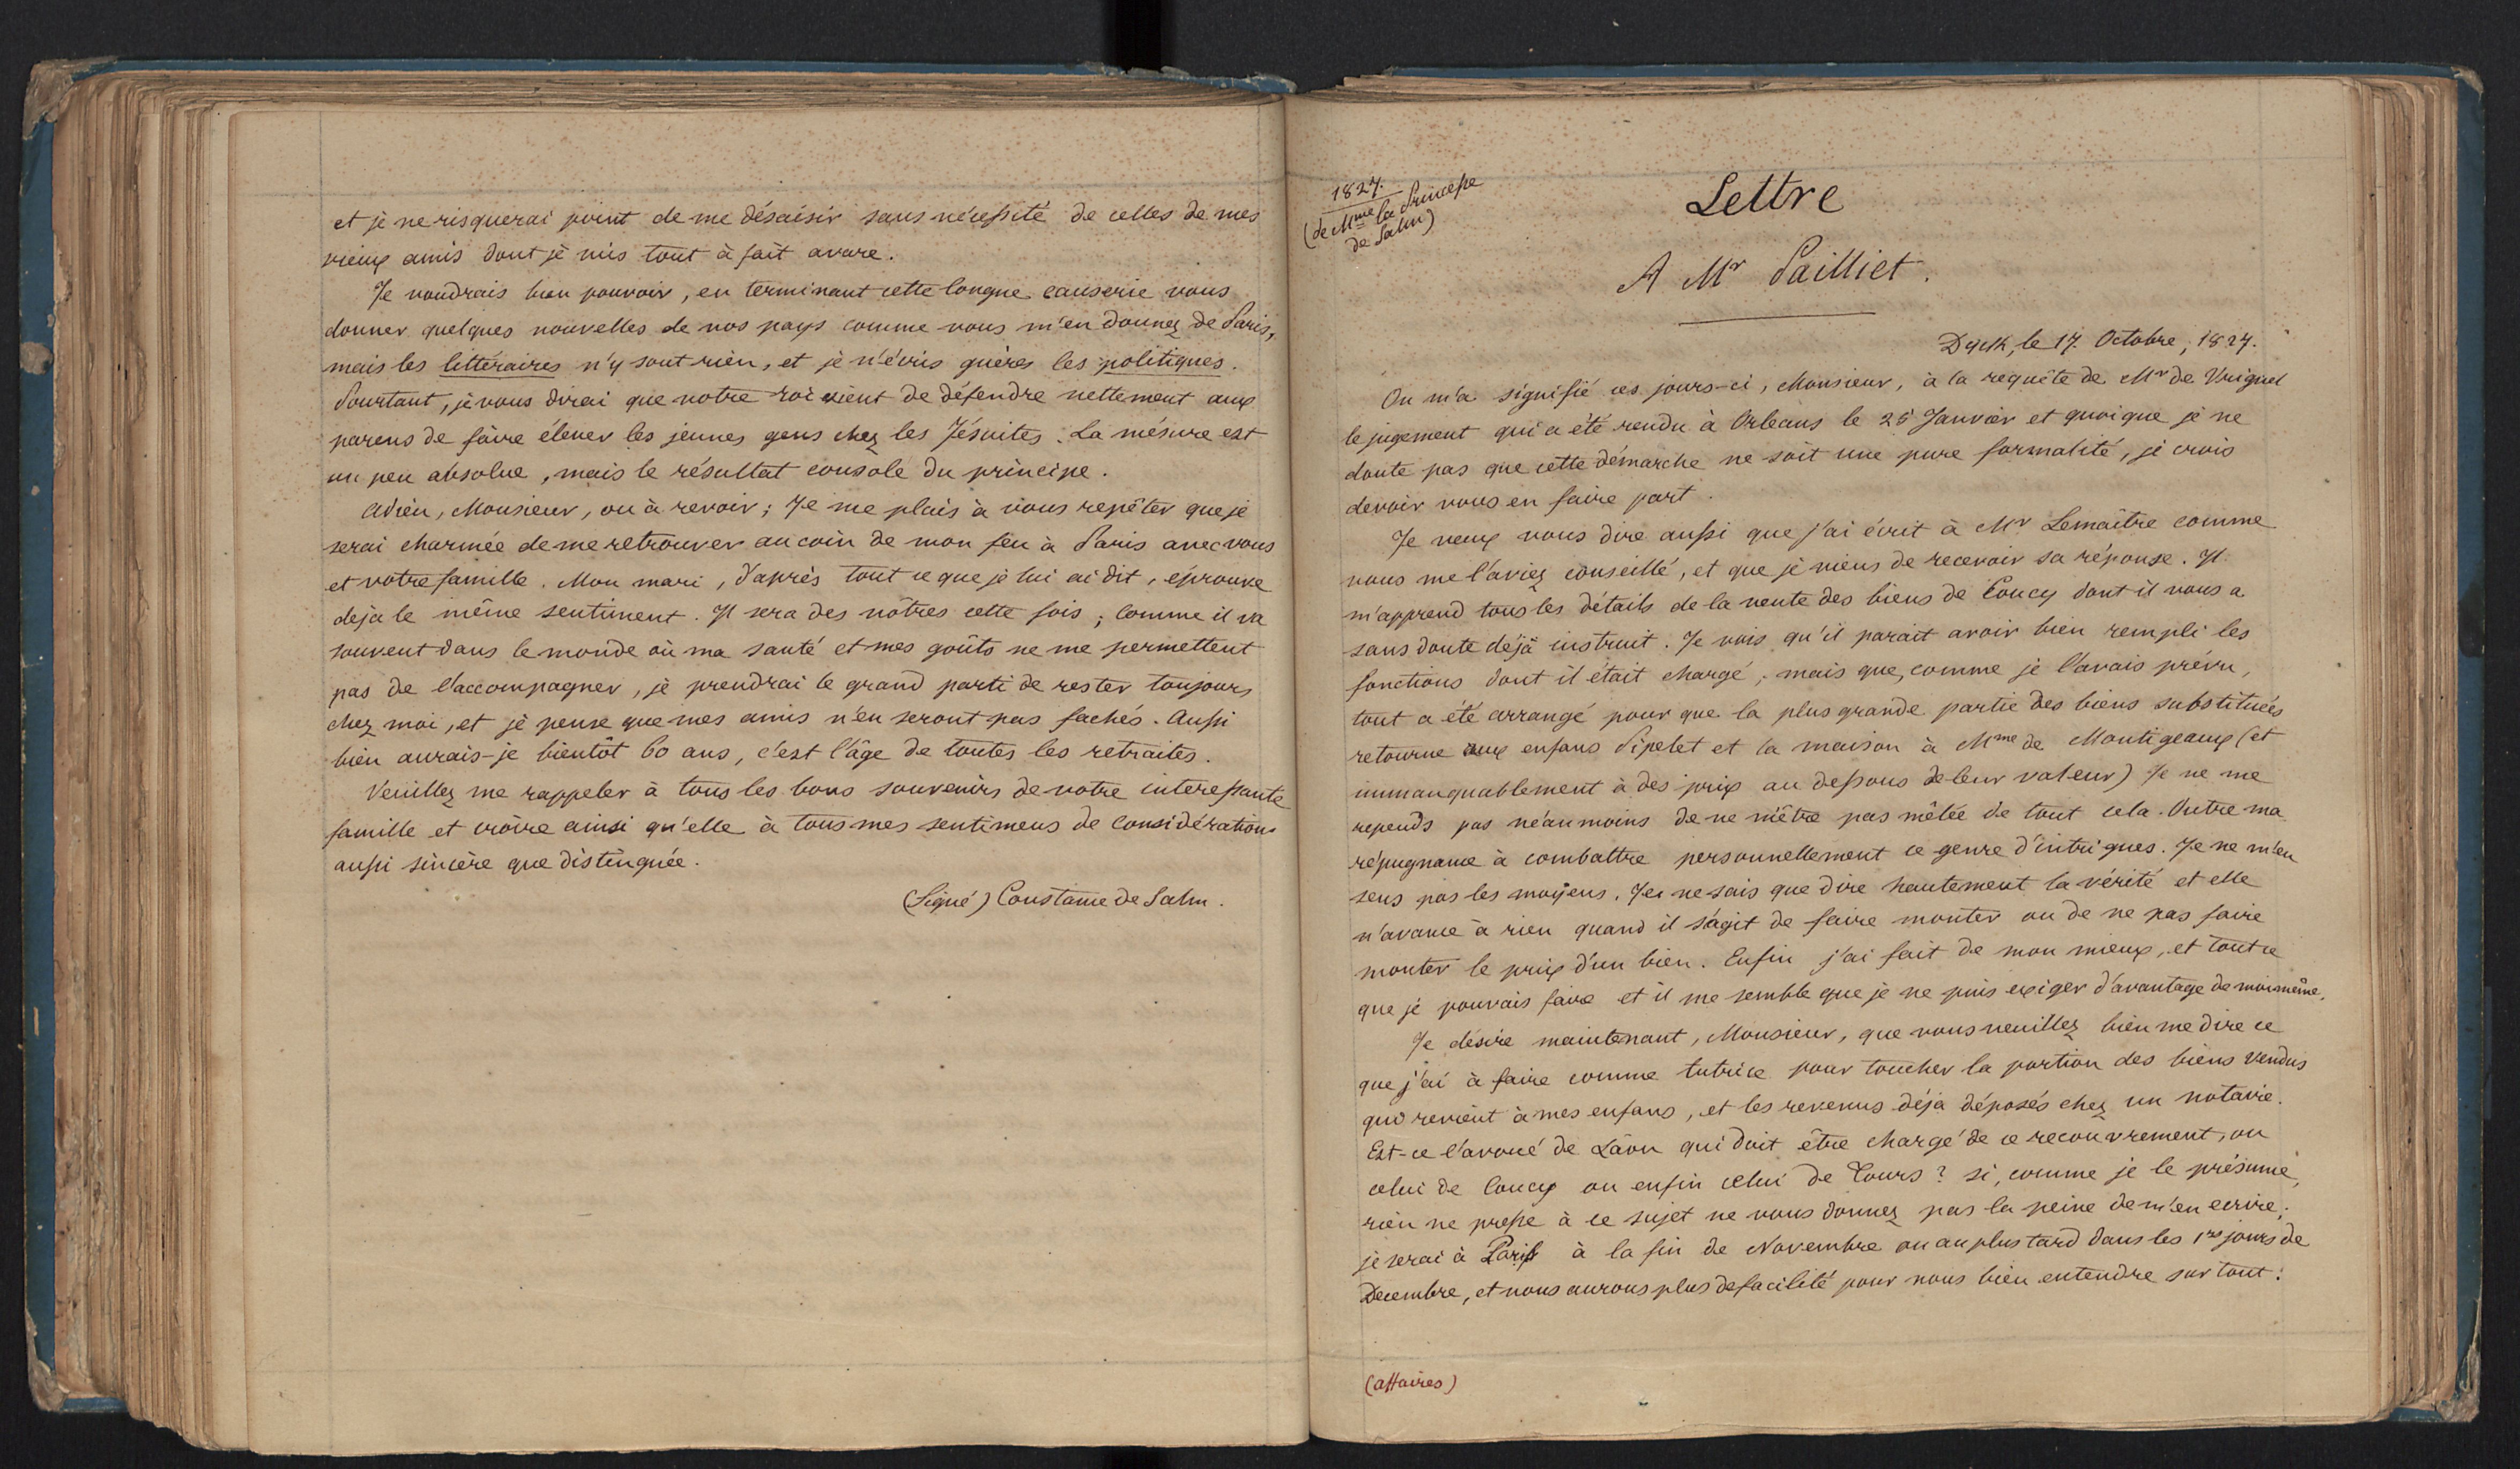 et je ne risquerai point de me désaisir sans nécessité de celles de mes
vieux amis dont je suis tout à fait avare.
Je voudrais bien pouvoir, en terminant cette longue causerie vous
donner quelques nouvelles de nos pays comme vous m'en donnez de Paris,
mais les littéraires n'y sont rien, et je n'écris guères les politiques.
Pourtant, je vous dirai que notre roi vient de défendre nettement aux
parens de faire élever les jeunes gens chez les Jésuites. La mésure est
un peu absolue, mais le résultat console du principe.
Adieu, Monsieur, ou à revoir; Je me plais à vous repéter que je
serai charmée de me retrouver au coin de mon feu à Paris avec vous
et votre famille. Mon mari, d'après tout ce que je lui ai dit, éprouve
deja le même sentiment. Il sera des nôtres cette fois; comme il va
souvent dans le monde où ma santé et mes goûts ne me permettent
pas de l'accompagner, je prendrai le grand parti de rester toujours
chez moi, et je pense que mes amis n'en seront pas fachés. Aussi
bien aurais-je bientôt 60 ans, c'est l'âge de toutes les retraites.
Veuillez me rappeler à tous les bons souvenirs de votre interessante
famille et croire ainsi qu'elle à tous mes sentimens de considération
aussi sincère que distinguée.
(Signé) Constance de Salm.
1827.
(de Mme la Princesse
de Salm)
Lettre
A Mr Pailliet.
Dyck, le 17. Octobre, 1827.
On m'a signifié ces jours-ci, Monsieur, à la requête de Mr de
le jugement qui a été rendu à Orleans le 25 Janvier et quoique je ne
doute pas que cette démarche ne soit une pure formalité, je crois
devoir vous en faire part.
Je veux vous dire aussi que j'ai écrit à Mr Lemaître comme
vous me l'aviez conseillé, et que je viens de recevoir sa réponse. Il
m'apprend tous les détails de la vente des biens de Coucy dont il vous a
sans doute déjà instruit. Je vois qu'il parait avoir bien rempli les
fonctions dont il était chargé; mais que, comme je l'avais prévu,
tout a été arrangé pour que la plus grande partie des biens substitués
retourne aux enfans Pipelet et la maison à Mme de Montigeaux (et
immanquablement à des prix au dessous de leur valeur) Je ne me
repends pas néanmoins de ne m'être pas mêlée de tout cela. Outre ma
répugnance à combattre personnellement ce genre d'intrigues. Je ne m'en
sens pas les moyens. Je ne sais que dire hautement la vérité et elle
n'avance à rien quand il s'agit de faire monter ou de ne pas faire
monter le prix d'un bien. Enfin j'ai fait de mon mieux, et tout ce
que je pouvais faire et il me semble que je ne puis exiger d'avantage de moi même.
Je désire maintenant, Monsieur, que vous veuillez bien me dire ce
que j'ai à faire comme tutrice pour toucher la portion des biens vendus
qui revient à mes enfans, et les revenus déja déposés chez un notaire.
Est-ce l'avoué de Laon qui doit être chargé de ce recouvrement, ou
celui de Coucy ou enfin celui de Tours? si, comme je le présume,
rien ne presse à ce sujet ne vous donnez pas la peine de m'en ecrire;
je serai à Paris à la fin de Novembre ou au plus tard dans les 1ers jours de
Decembre, et nous aurons plus de facilité pour nous bien entendre sur tout.
(affaires)